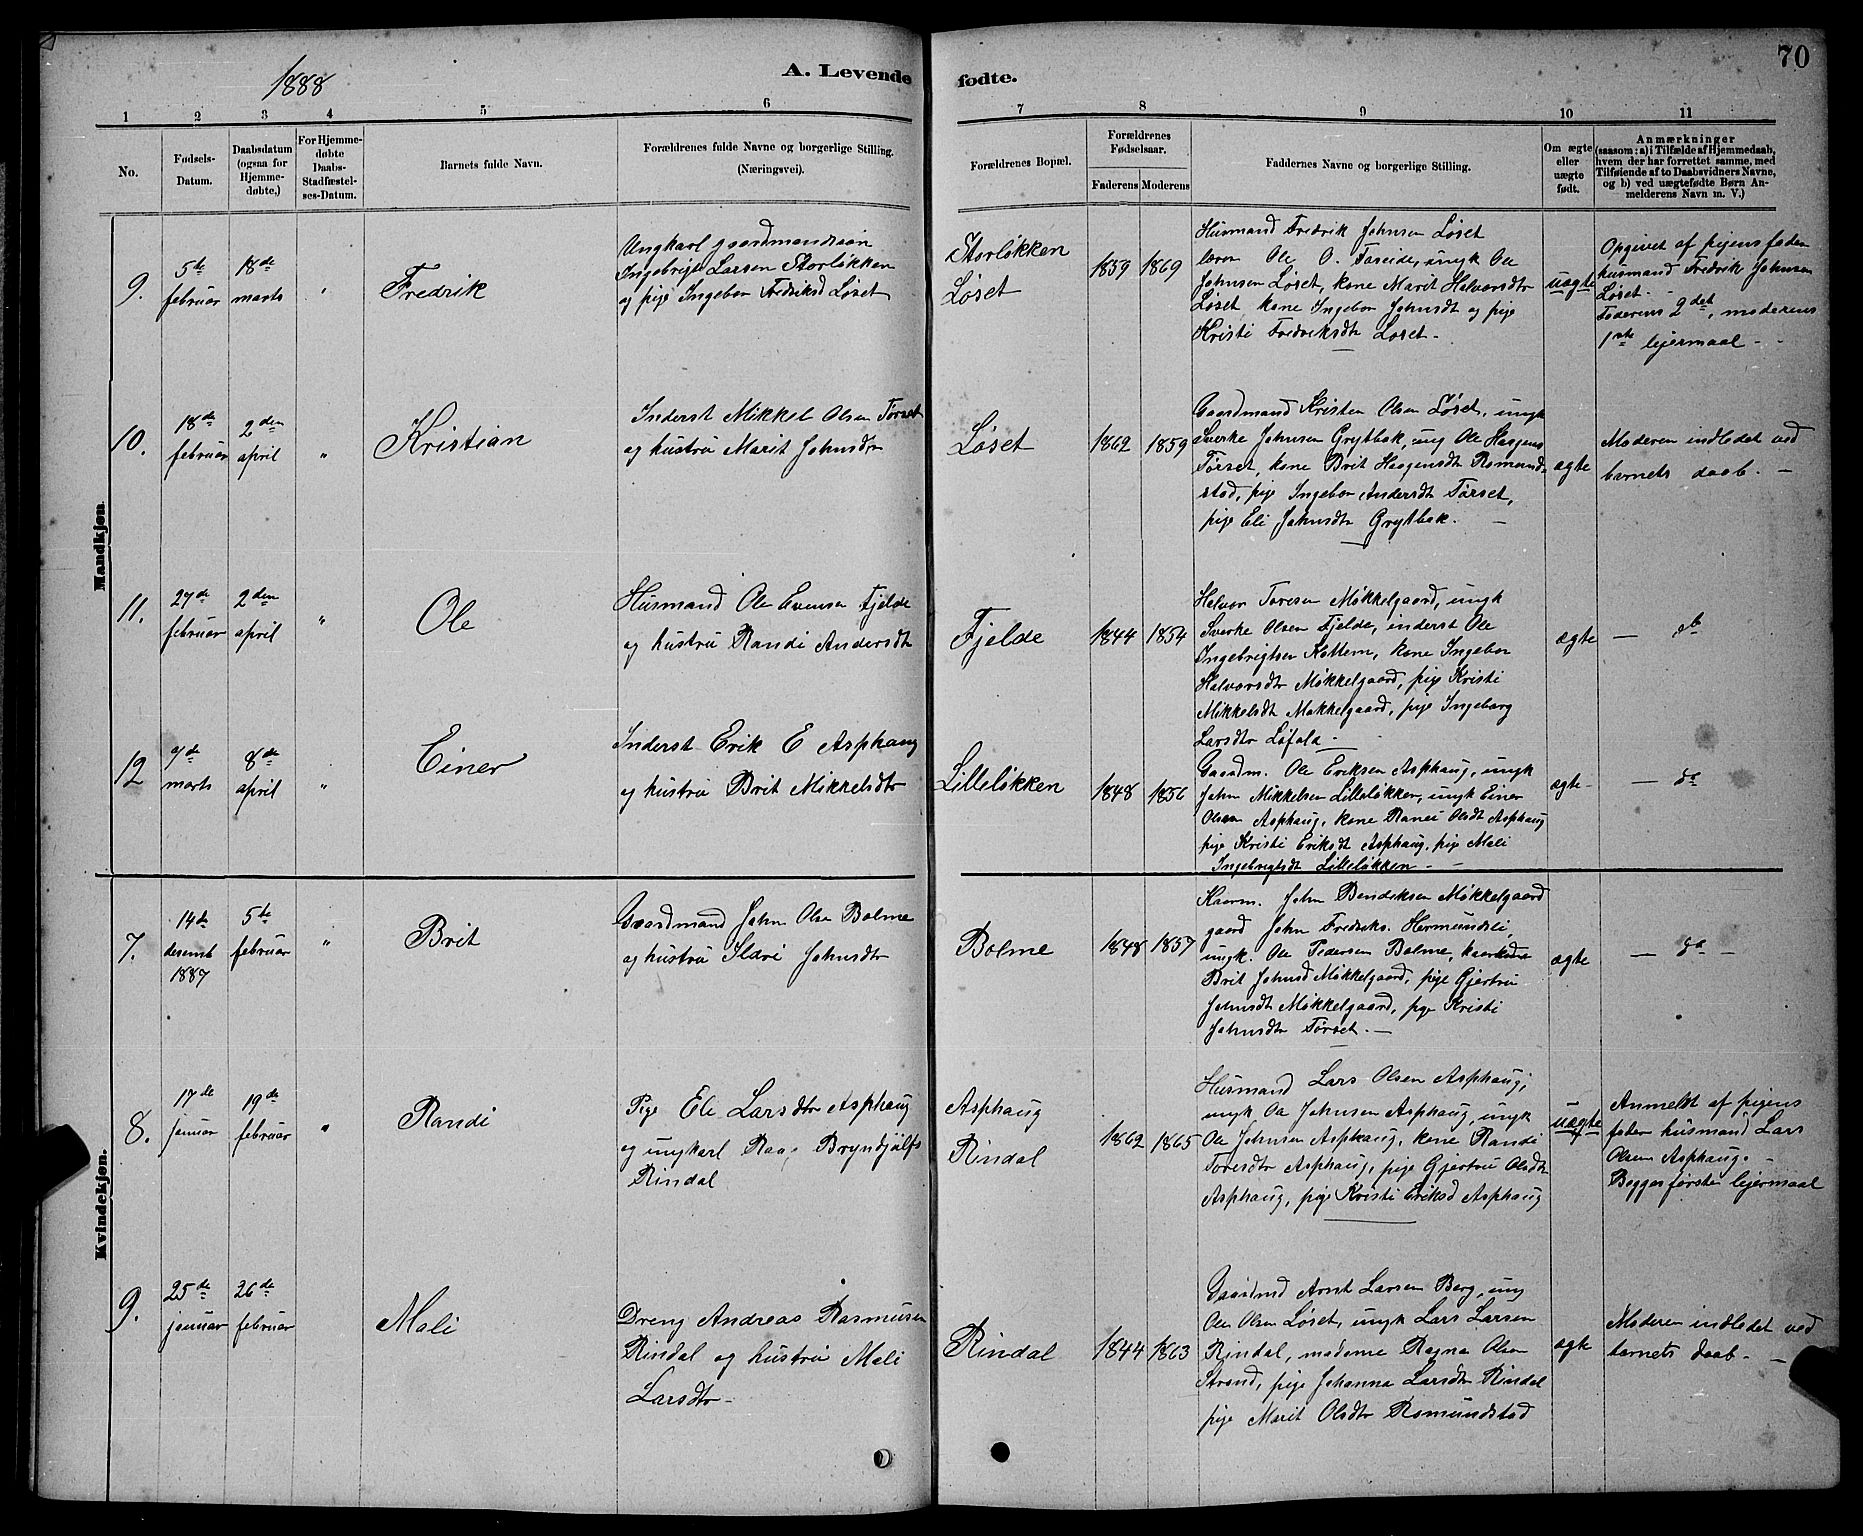 70
1888
A. Levende fødte.
1 2 3 4 5 6 7 8 9 10 11
No.
Fødsels-
Datum.
Daabsdatum
(ogsaa for
Hjemme-
døbte.)
For Hjemme-
døbte
Daabs-
Stadfæstel-
ses-Datum.
Barnets fulde Navn.
Forældrenes fulde Navne og borgerlige Stilling.
(Næringsvei).
Forældrenes Bopæl.
Forældrenes
Fødselsaar.
Faderens Moderens
Faddernes Navne og borgerlige Stilling.
Om ægte
eller
uægte
født.
Anmærkninger
(saasom: a) i Tilfælde af Hjemmedaab,
hvem der har forrettet samme, med
Tilføiende af to Daabsvidners Navne,
og b) ved uægtefødte Børn An-
melderens Navn m. V.)
Mandkjøn.
9.
5te
februar
18de
marts
"
Fredrik
Ungkarl gaardmandssøn
Ingebrigt Larsen Storløkken
og pige Ingebor Fredriksd Løset
Storløkken
Løset
1859 1869
Husmand Fredrik Johnsen Løset
lærer Ole O. Fareide, ungk Ole
Johnsen Løset, kone Marit Halvorsdtr
Løset, kone Ingebor Johnsdt og pige
Kristi Fredriksdt Løset -
uægte
Opgivet af pigens fader
husmand Fredrik Johnsen
Løset. -
Faderens 2det, moderens
1ste lejermaal -
10.
18de
februar
2den
april
"
Kristian
Inderst Mikkel Olsen Tørset
og hustru Marit Johnsdtr
Løset
1862 1859
Gaardmand Kristen Olsen Løset, ungk
Sverke Johnsen Grytbak, ung Ole Haagens
Tørset, kone Brit Haagensdt Romund-
stad, pige Ingebor Andersdt Tørset,
pige Eli Johnsdtr Grytbak. -
ægte
Moderen indledet ved
barnets daab. -
11.
27de
februar
2den
april
"
Ole
Husmand Ole Evensen Fjelde
og hustru Randi Andersdt
Fjelde
1844 1854
Halvor Toresen Møkkelgaard, ungk
Sverke Olsen Fjelde, inderst Ole
Ingebrigtsen Kattem, kone Ingebor
Halvorsdtr Møkkelgaard, pige Kristi
Mikkelsdt Møkkelgaard, pige Ingeborg
Larsdtr Løfald -
ægte
- do
12
9de
marts
8de
april
"
Einer
Inderst Erik E Asphaug
og hustru Brit Mikkelsdtr
Lilleløkken
1848 1856
Gaardm. Ole Eriksen Asphaug, ungk
John Mikkelsen Lilleløkken, ungk Einer
Olsen Asphaug, kone Ranei Olsdt Asphaug
pige Kristi Eriksdt Asphaug, pige Mali
Ingebrigtsdt Lilleløkken -
ægte -
- do
Kvindekjøn.
7.
14de
desemb
1887
5te
februar
"
Brit
Gaardmand John Olse Bolme
og hustru Ildri Johnsdtr
Bolme
1848 1857
Kaarm. John Bendiksen Møkkelgaard
gaard John Fredriks. Hermundsli,
ungk. Ole Pedersen Bolme, kaarkone
Brit Johnsd Møkkelgaard, pige Gjertru
Johnsdt Møkkelgaard, pige Kristi
Johnsdtr Tørset. -
ægte
- do -
8.
17de
januar
19de
februar
"
Randi
Pige Eli Larsdtr Asphaug
og ungkarl Raa Bryndjulfs
Rindal
Asphaug
Rindal
1862 1865
Husmand Lars Olsen Asphaug,
ungk Ole Johnsen Asphaug, ungk
Ole Johnsen Asphaug, kone Randi
Toresdtr Asphaug, pige Gjertru Olsdtr
Asphaug, pige Kristi Eriksd Asphaug
uægte
Anmeldt af pigens
fader husmand Lars
Olsen Asphaug. -
Begges første lejermaal
9.
25de
januar
26de
februar
Mali
Dreng Andreas Rasmusen
Rindal og hustru Mali
Larsdtr -
Rindal
1844 1863
Gaardmd Arnt Larsen Berg, ung
Ole Olsen Løset, ungk Lars Larsen
Rindal, madame Ragna Olsen
Strand, pige Johanna Larsdtr Rindal
pige Marit Olsdtr Romundstad
ægte
Moderen indledet ved
barnets daab. -